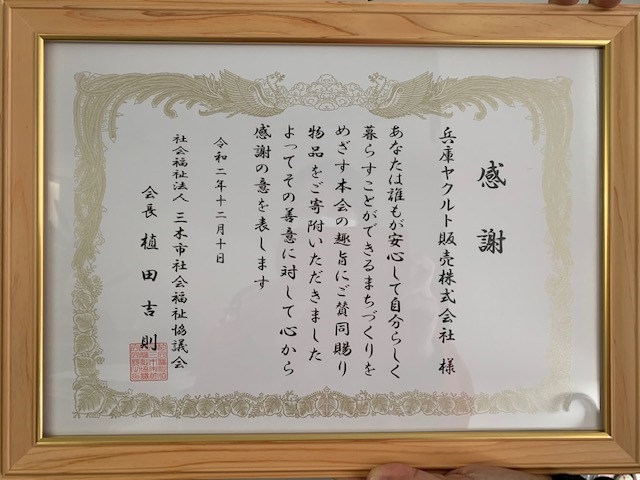 感謝
兵庫ヤクルト販売株式会社 様
あなたは誰もが安心して自分らしく
暮らすことができるまちづくりを
めざす本会の趣旨にご賛同賜り
物品をご寄附いただきました
よってその善意に対して心から
感謝の意を表します
令和二年十二月十日
社会福祉法人 三木市社会福祉協議会
会長 植田吉則